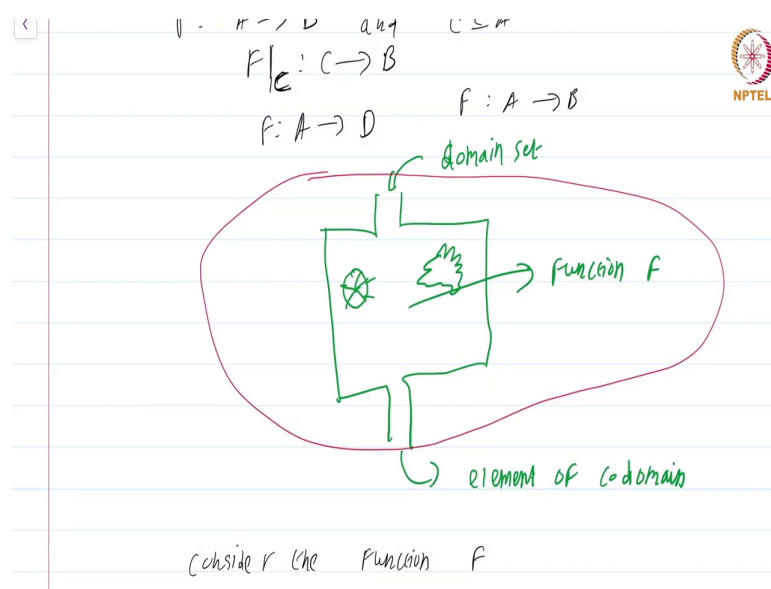 and
F|c : C → B
NPTEL
F : A → B
F: A → D
domain set
Function F
element of codomain
Consider the Function F